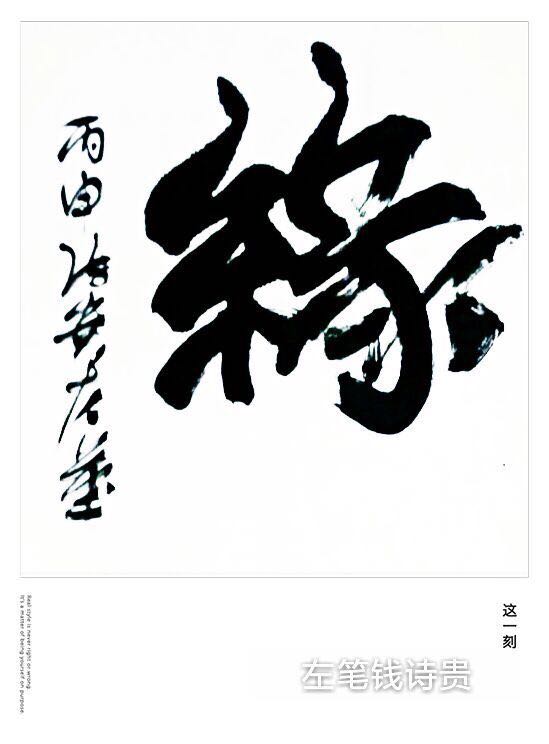 緣
丙申海安左筆
这一刻
左笔钱诗贵
Real style is never right or wrong
It's a matter of being yourself on purpose.